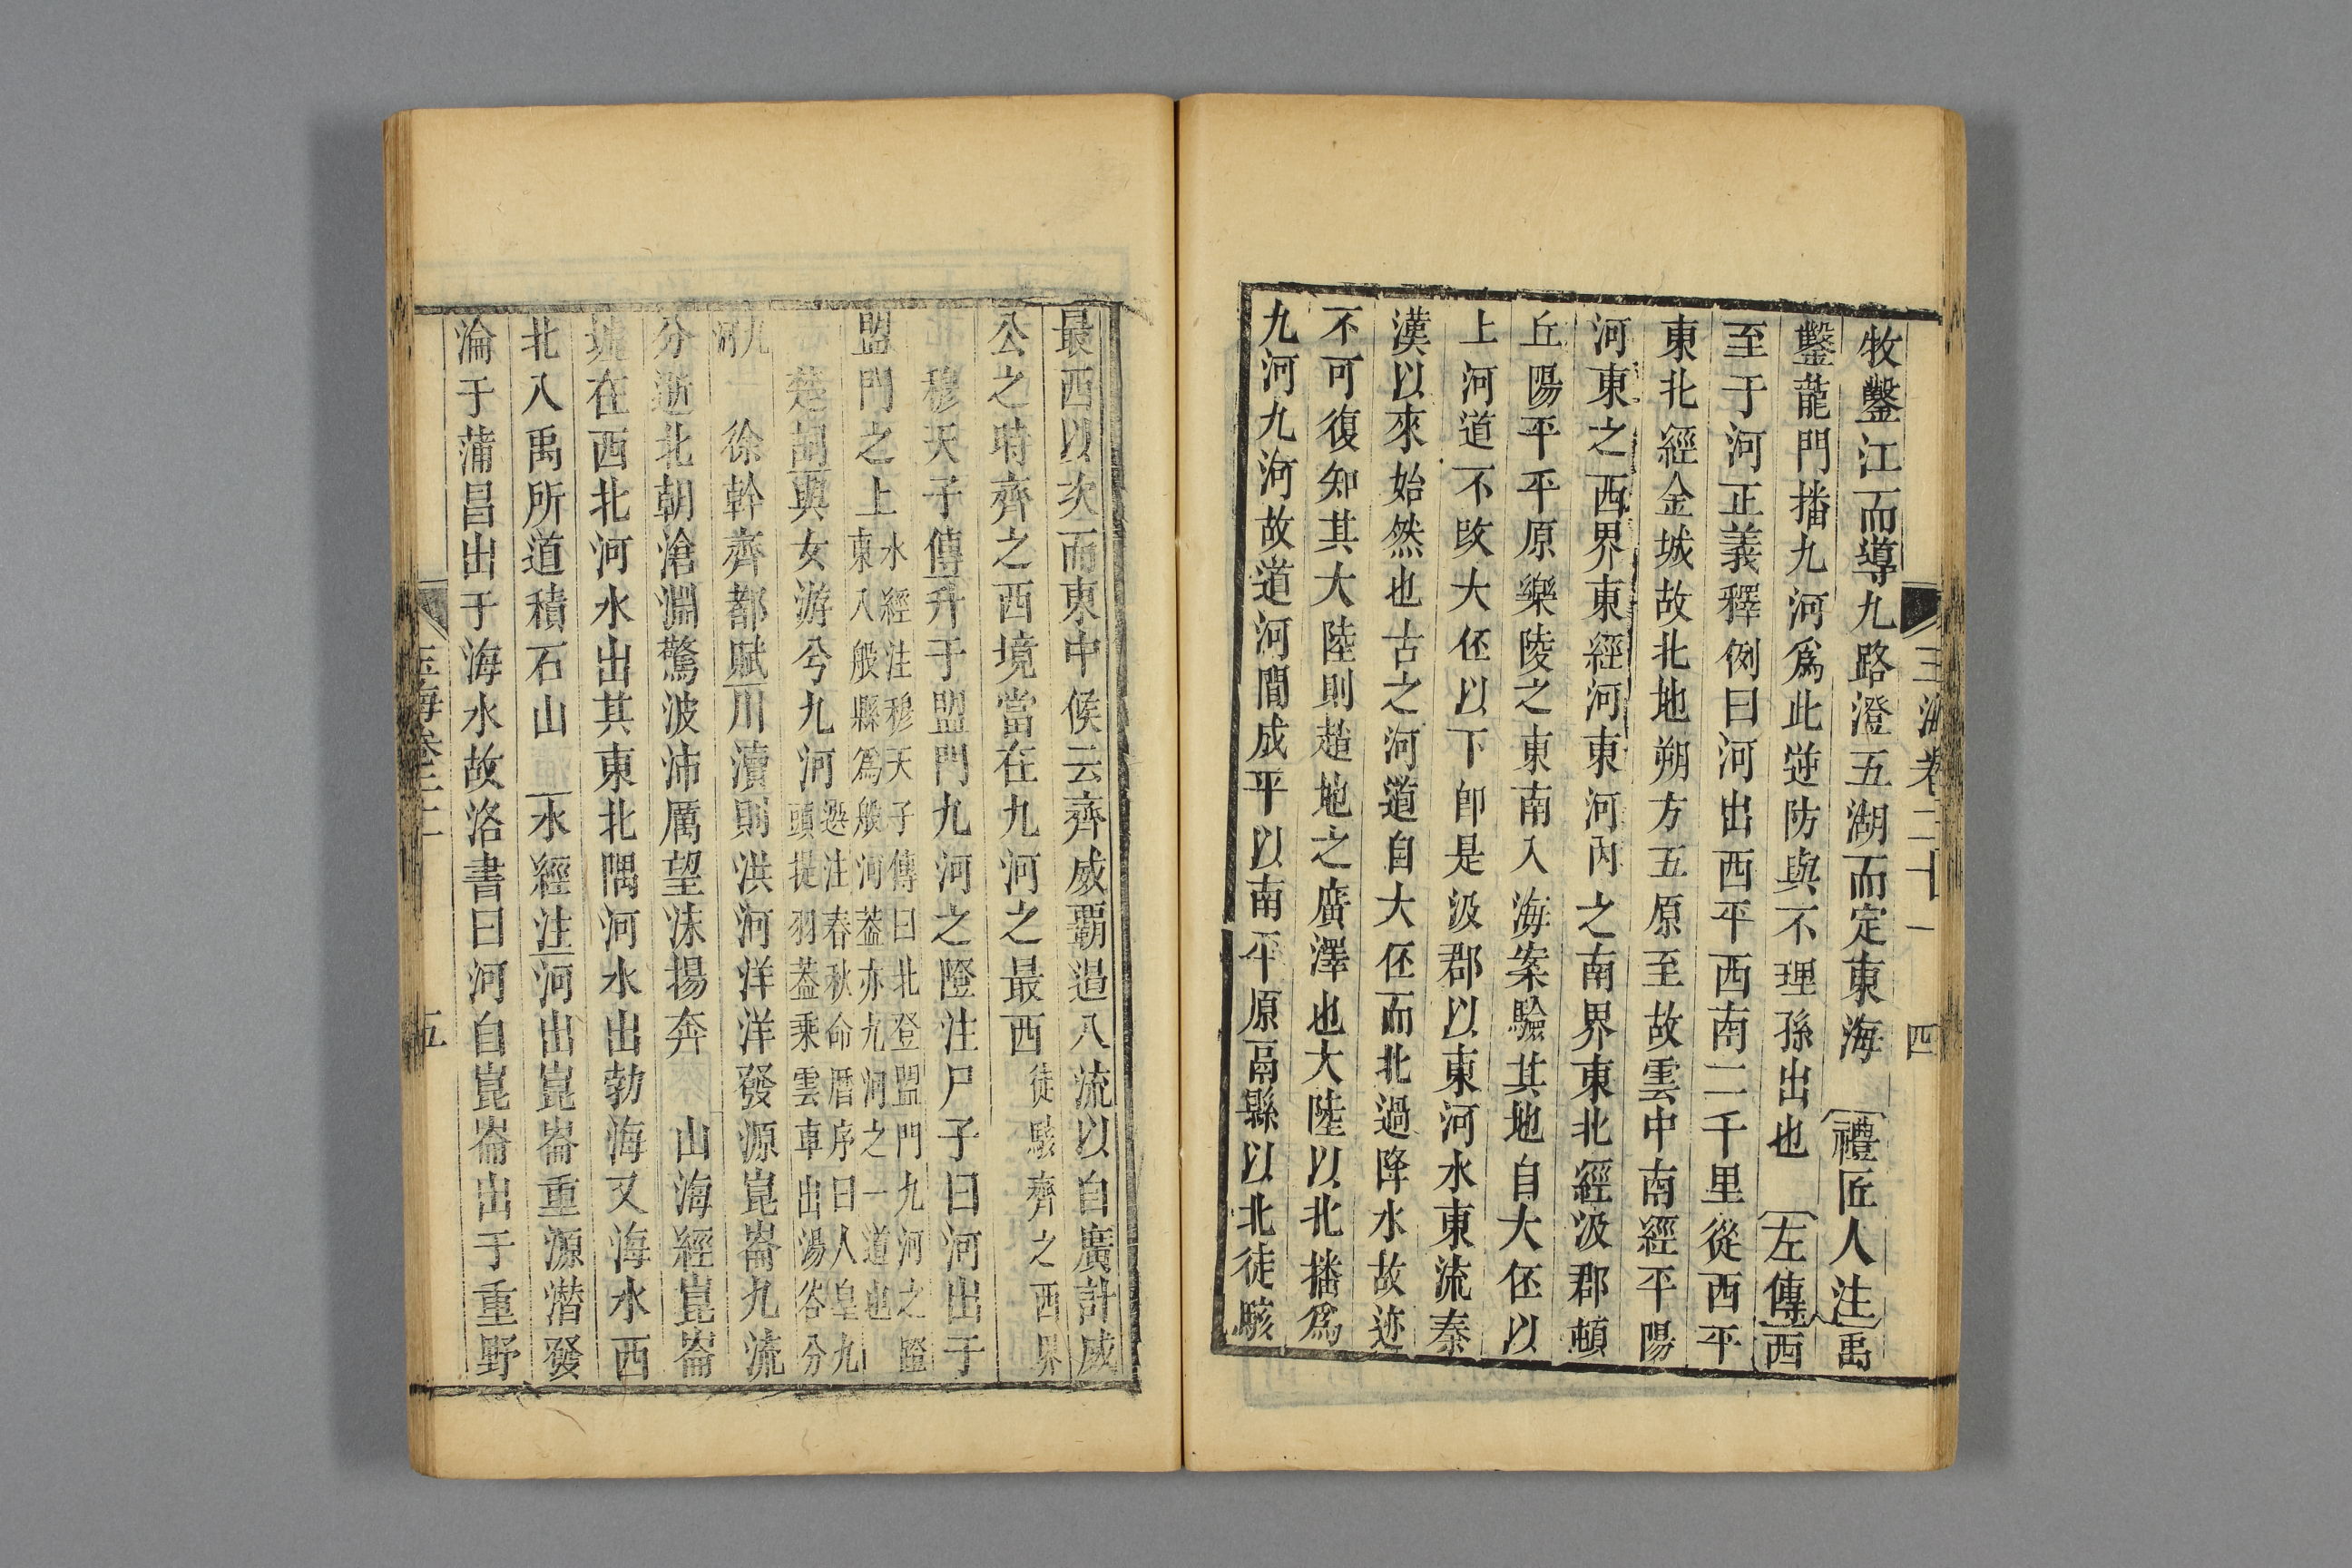 玉海卷二十一 四
牧鑿江而導九路澄五湖而定東海 禮匠人注禹
鑿龍門播九河爲此逆防與不理孫出也 左傳西
至于河正義釋例曰河出西平西南二千里從西平
東北經金城故北地朔方五原至故雲中南經平陽
河東之西界東經河東河內之南界東北經汲郡頓
丘陽平平原樂陵之東南入海案驗其地自大伾以
上河道不改大伾以下卽是汲郡以東河水東流秦
漢以來始然也古之河道自大伾而北過降水故迹
不可復知其大陸則趙地之廣澤也大陸以北播爲
九河九河故道河間成平以南平原鬲縣以北徒駭
最西以次而東中候云齊威覇遏八流以自廣計威
公之時齊之西境當在九河之最西徒駭齊之西界
穆天子傳升于盟門九河之隥注尸子曰河出于
盟門之上水經注穆天子傳曰北登盟門九河之隥
東入般縣爲般河葢亦九河之一道也
楚詞與女游兮九河選注春秋命曆序曰人皇九
頭提羽葢乘雲車出湯谷分
九河 徐幹齊都賦川瀆則洪河洋洋發源崑崙九流
分逝北朝滄淵驚波沛厲望沫揚奔 山海經崑崙
墟在西北河水出其東北隅河水出勃海又海水西
北入禹所道積石山 水經注河出崑崙重源潛發
淪于蒲昌出于海水故洛書曰河自崑崙出于重野
玉海卷二十 五